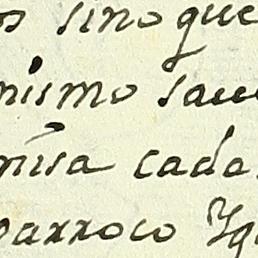 sino que
mismo sa
misa cada
parroco Yg